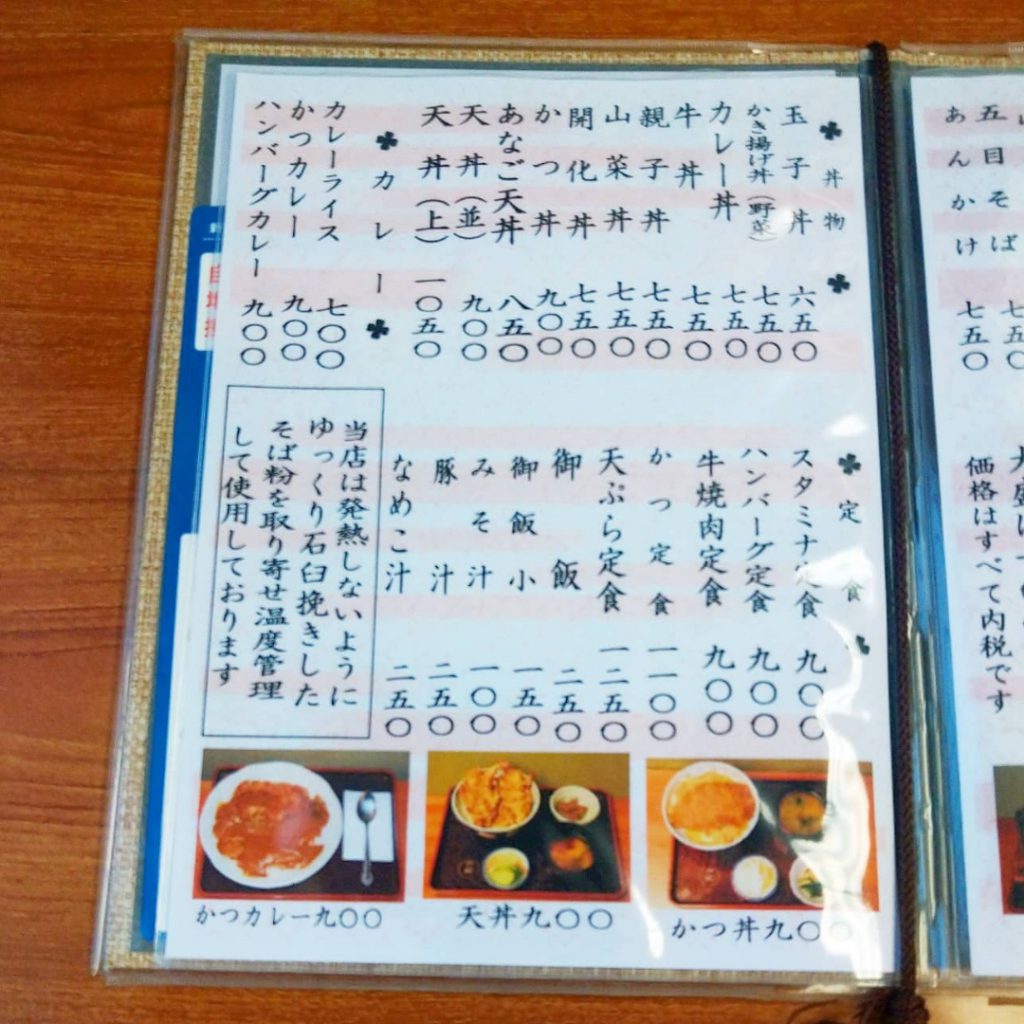 あんかけ 七五〇
五目そば 七五〇
価格はすべて内税です
丼物
玉子丼 六五〇
かき揚げ丼(野菜) 七五〇
カレー丼 七五〇
牛丼 七五〇
親子丼 七五〇
山菜丼 七五〇
開化丼 七五〇
かつ丼 九〇〇
あなご天丼 八五〇
天丼(並) 九〇〇
天丼(上) 一〇五〇
カレー
カレーライス 七〇〇
かつカレー 九〇〇
ハンバーグカレー 九〇〇
定食
スタミナ定食 九〇〇
ハンバーグ定食 九〇〇
牛焼肉定食 九〇〇
かつ定食 一一〇〇
天ぷら定食 一二五〇
御飯 二五〇
御飯小 一五〇
みそ汁 一〇〇
豚汁 二五〇
なめこ汁 二五〇
当店は発熱しないように
ゆっくり石臼挽きした
そば粉を取り寄せ温度管理
して使用しております
かつカレー九〇〇
天丼九〇〇
かつ丼九〇〇